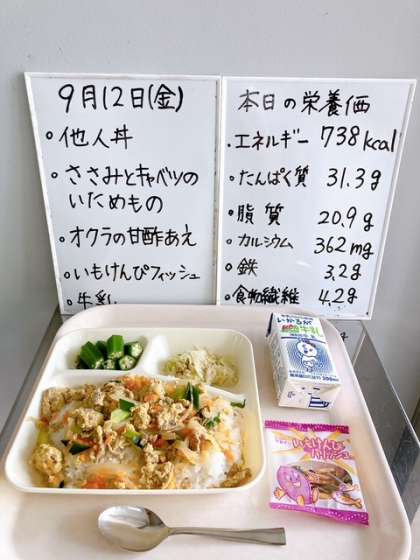 9月12日(金)
・他人丼
・ささみとキャベツの
いためもの
・オクラの甘酢あえ
・いもけんぴフィッシュ
・牛乳
本日の栄養価
・エネルギー 738kcal
・たんぱく質 31.3g
・脂質 20.9g
・カルシウム 362mg
・鉄 3.2g
・食物繊維 4.2g
いかるが
牛乳
いもけんぴ
フィッシュ